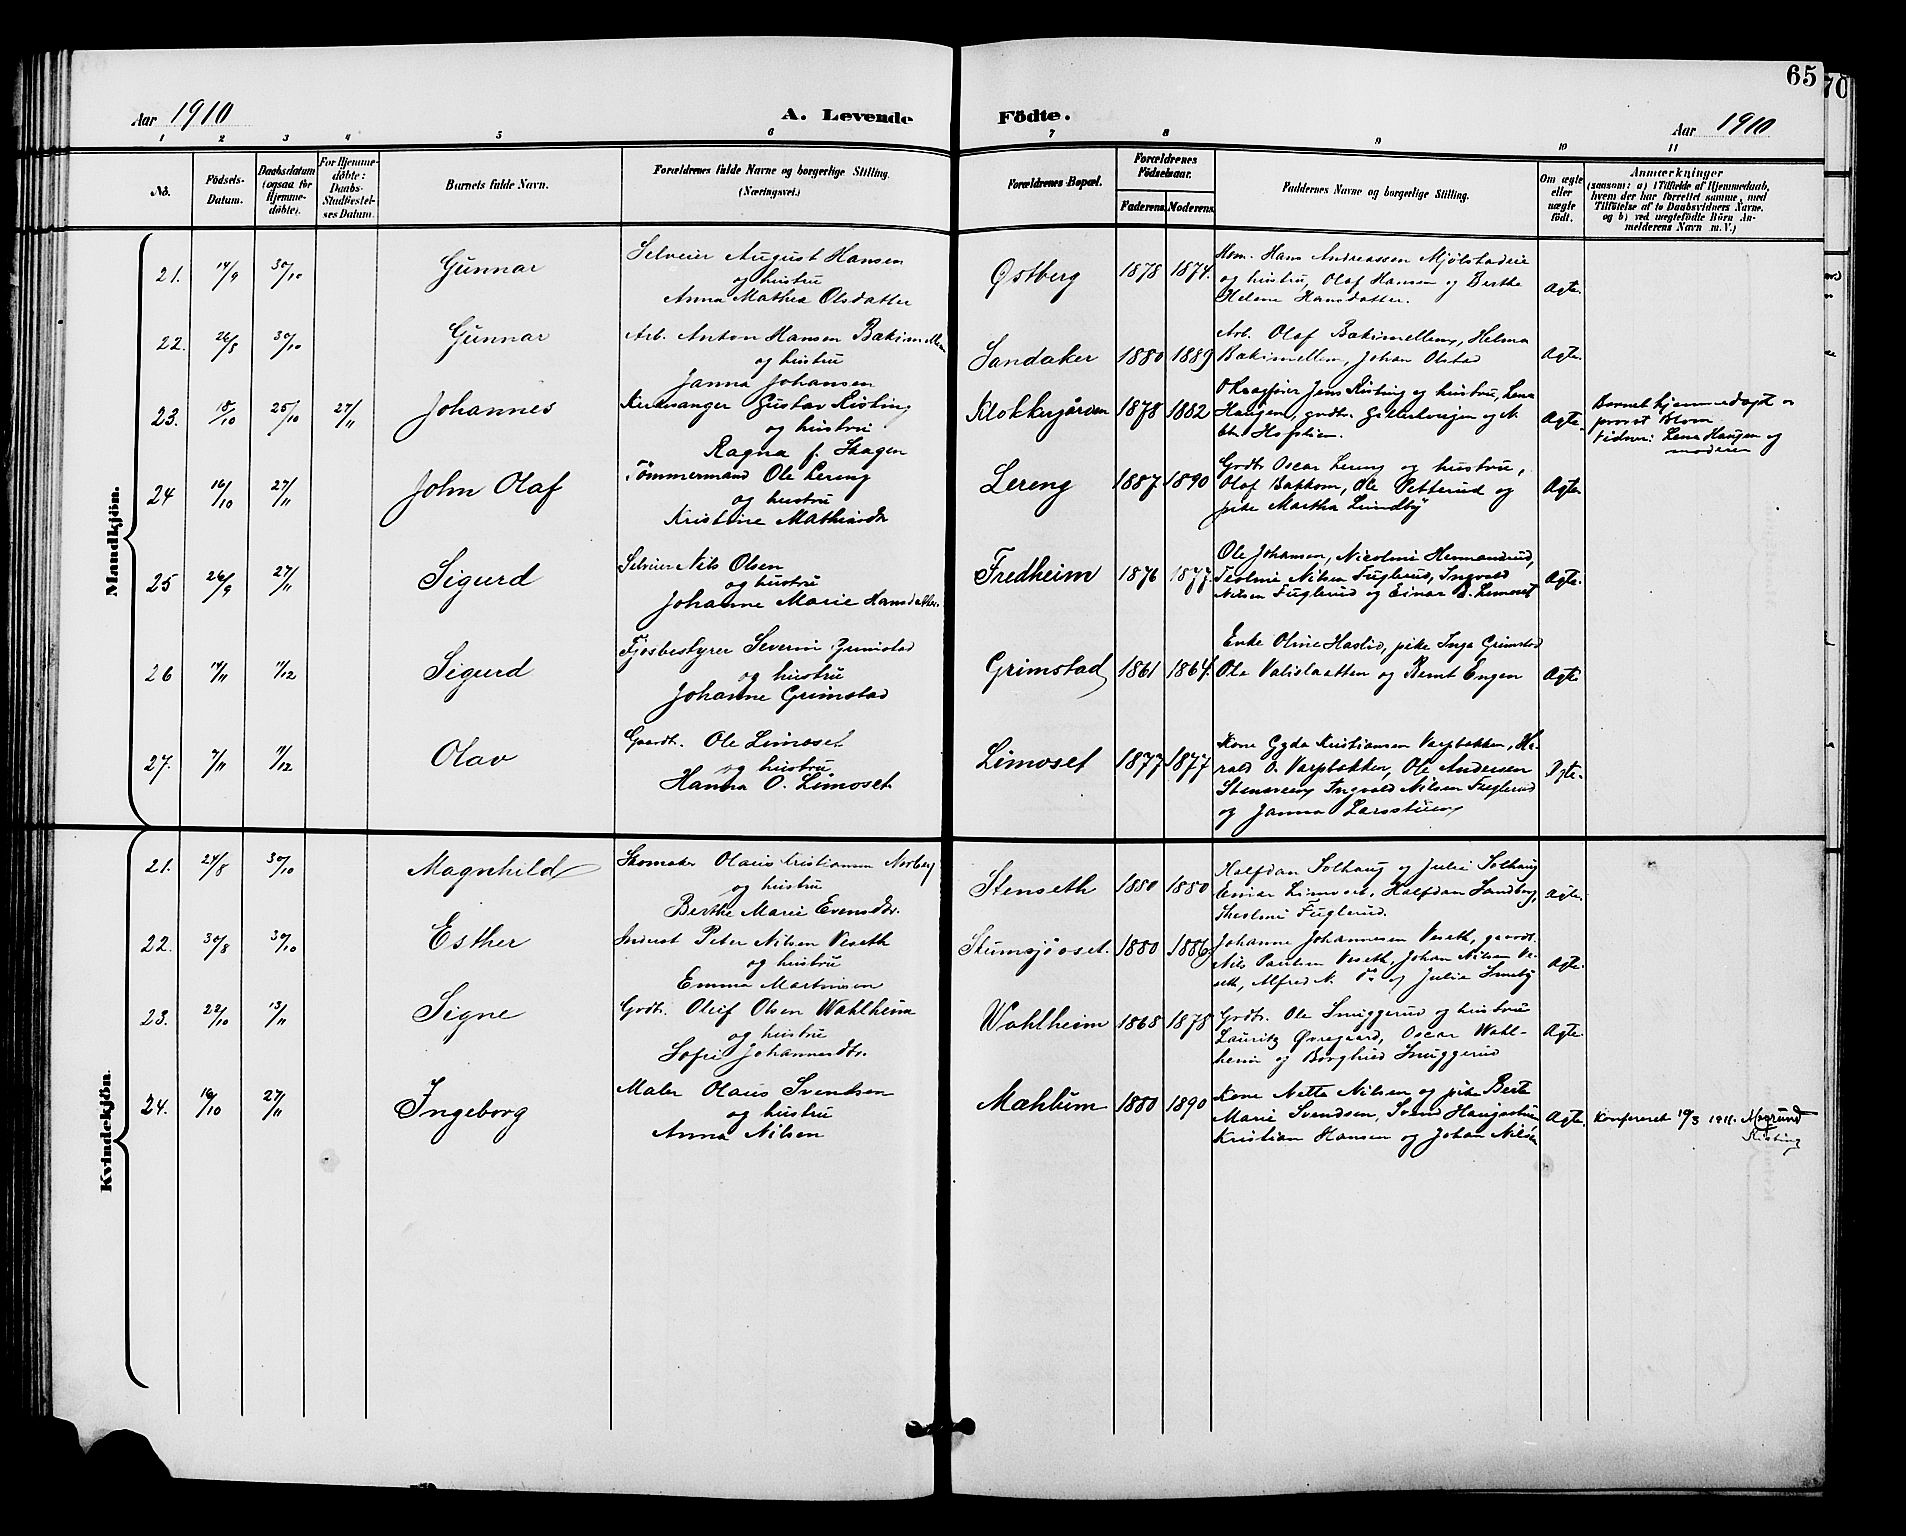 65
70
Aar 1910
A. Levende Födte.
Aar 1910
1 2 3 4 5 6 7 8 9 10 11
No.
Födsels-
Datum.
Daabsdatum
(ogsaa for
Hjemme-
döbte).
For Hjemme-
döbte:
Daabs-
Stadfæstel-
ses Datum.
Barnets fulde Navn.
Forældrenes fulde Navne og borgerlige Stilling.
(Næringsvei.)
Forældrenes Bopæl.
Forældrenes
Födselsaar.
Faderens. Moderens.
Faddernes Navne og borgerlige Stilling.
Om ægte
eller
uægte
födt.
Anmærkninger
(saasom: a) i Tilfælde af Hjemmedaab,
hvem der har forrettet samme, med
Tilföielse af to Daabsvidners Navne.
og b) ved uægtefödte Börn An-
melderens Navn m. V.)
Mandkjön.
21. 14/9 30/10 Gunnar
Selveier August Hansen
og hustru
Anna Mathea Olsdatter
Østberg 1878 1874.
Hom. Hans Andreassen Mjølstadeie
og hustru, Olaf Hansen og Berthe
Helene Hansdatter.
Ægte.
22. 26/8 30/10 Gunnar
Arb. Anton Hansen
og hustru
Janna Johansen
Sandaker 1880 1889
Arb. Olaf Helma
Johan Olstad
Ægte.
23. 18/10 25/10 27/11 Johannes
Kirkesanger Gustav Risting
og hustru
Ragna f. Haagen
Klokkergården 1878 1882
Jens Risting og hustru, Lena
Haugen, grdbr.
Hofstien.
Ægte.
Barnet hjemmedøpt av
provst Blom
vidner: Lena Haugen og
moderen
24 16/10 27/11 John Olaf
Tömmermand Ole Lereng
og hustru
Kristine Mathiasdtr
Lereng 1887 1890
Grdbr Oscar Lereng og hustru,
Olaf Bakkom, Ole Petterud og
pike Martha Lundby
Ægte
25 26/9 27/11 Sigurd
Selveier Nils Olsen
og hustru
Johanne Marie Hansdatter.
Fredheim 1876 1877.
Ole Johansen, Nicoline Hermandsrud,
Teoline Nilsen Fuglerud, Ingvald
Nilsen Fuglerud og Einar B. Limoset
Ægte.
26 14/11 11/12 Sigurd
Fjøsbestyrer Severin Grimstad
og hustru
Johanne Grimstad
Grimstad 1861 1864.
Enke Oline Haslid, pike Inga Grimstad
Ole og Bernt Engen
Ægte
27. 7/11 11/12 Olav
Gaardbr. Ole Limoset
og hustru
Hanna O. Limoset.
Limoset 1877 1877
Kone Gyda Kristiansen Varpbakken, Ha-
rald O. Varpbakken, Ole Andersen
Stensveen, Ingvald Nilsen Fuglerud
og Janna Larsstuen
Ægte.
Kvindekjön.
21. 24/8 30/10 Magnhild
Skomaker Olaus Kristiansen Norberg
og hustru
Berthe Marie Evensdtr.
Stenseth 1880 1880
Halfdan Solhaug og Julie Solhaug
Einar Limoset, Halfdan Sandberg,
Theoline Fuglerud.
Ægte.
22. 30/8 30/10 Esther
Inderst Peter Nilsen Veseth
og hustru
Emma Martinsen
1880 1886
Johanne Johannesen Veseth, gaardbr.
Nils Paulsen Veseth, Johan Nilsen Ve-
seth, Alfred N. do og Julie Smeby
Ægte.
23. 22/10 13/11 Signe
Grdbr. Oluf Olsen Wahlheim
og hustru
Sofie Johannesdtr.
Wahlheim 1868 1878
Grdbr. Ole Snuggerud og hustru
Lauritz Øvregaard, Oscar Wahl-
heim og Borghild Snuggerud
Ægte.
24. 16/10 27/11 Ingeborg
Maler Olaus Svendsen
og hustru
Anna Nilsen
Mæhlum 1880 1890
Kone Netta Nilsen og pike Berte
Marie Svendsen, Svend Haugastuen
Kristian Hansen og Johan Nilsen
Ægte.
Konfereret 10/3 1911. Mogrund
Risting